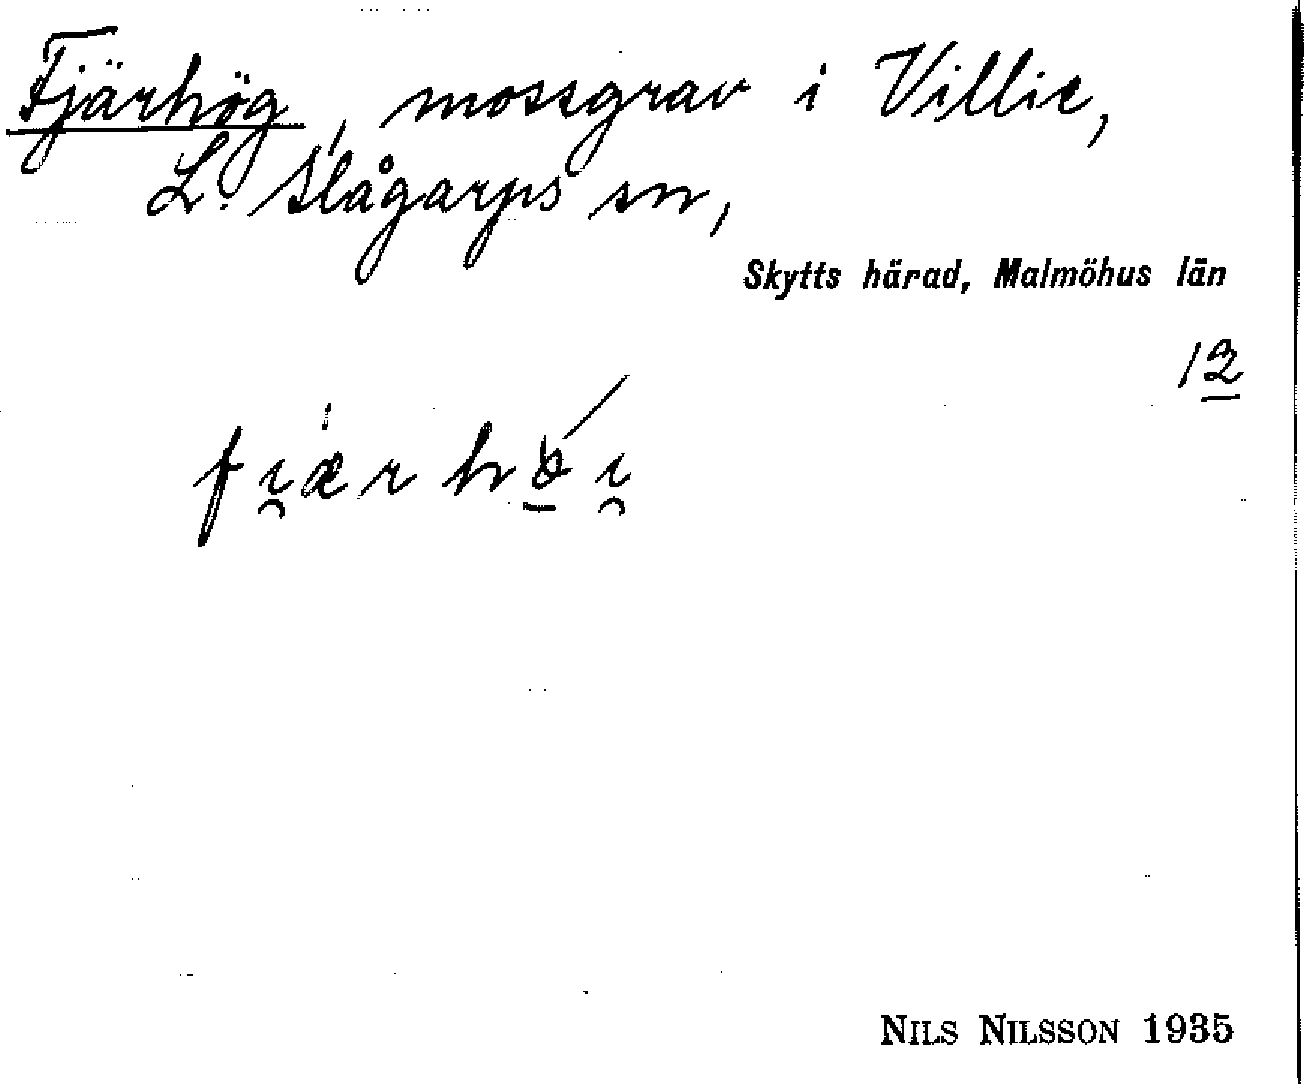 Fjärhög, mossgrav i Villie,
L. Slågarps sn,
Skytts härad, Malmöhus län
12
fi̯ærhö́i̯
NILS NILSSON 1935